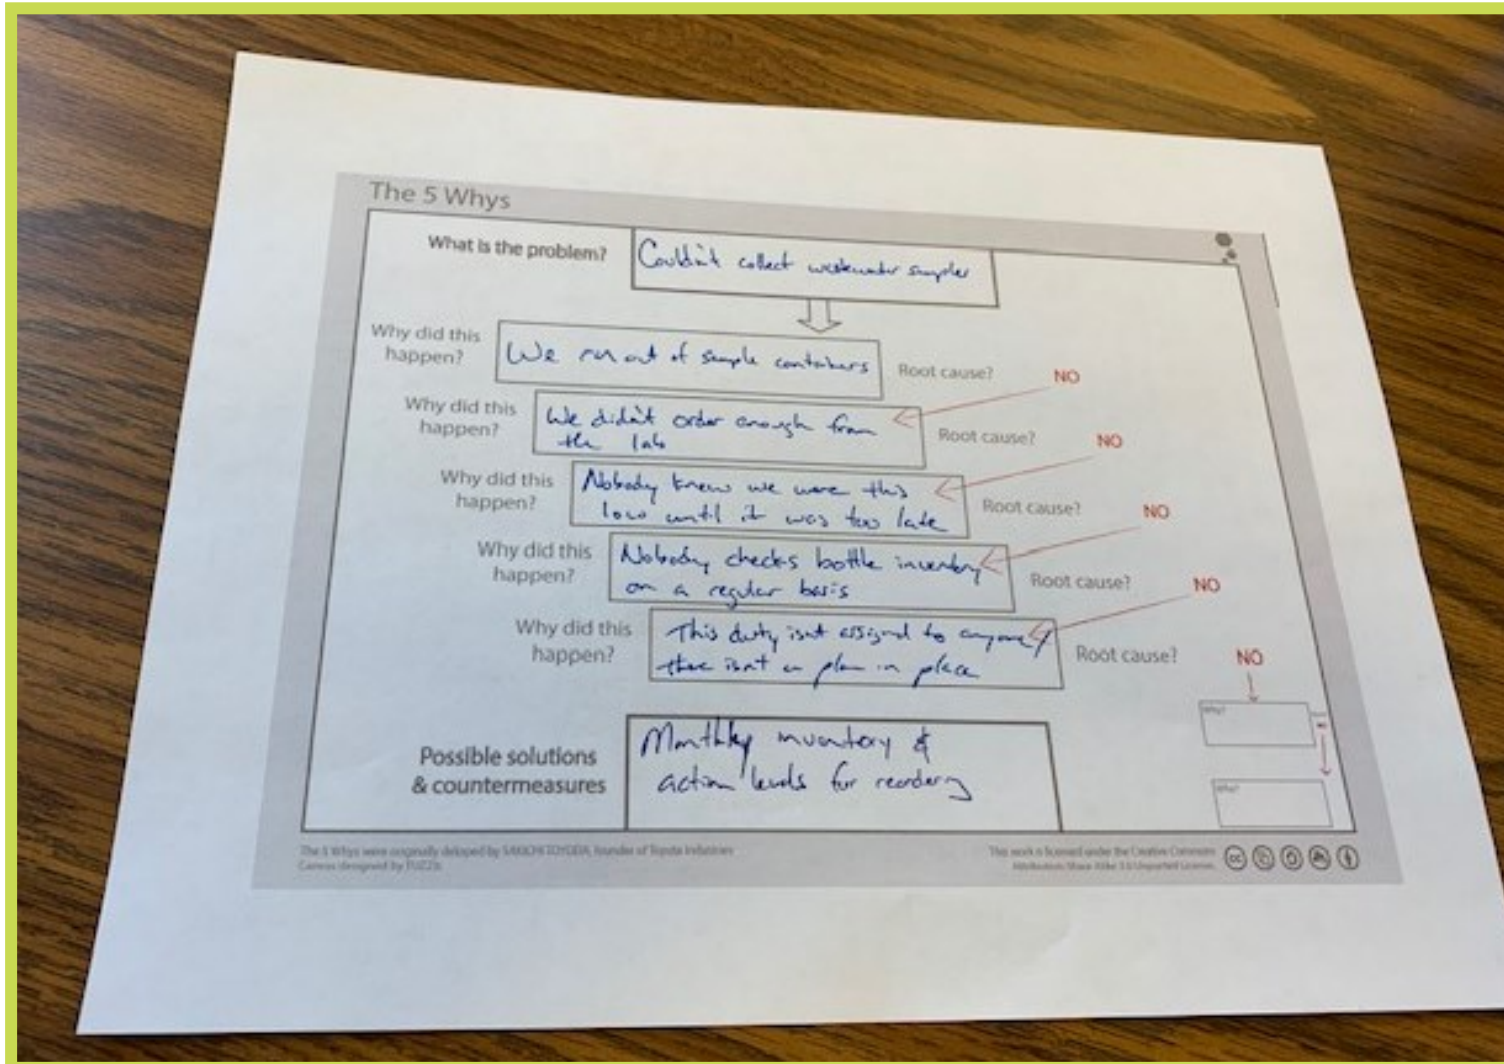 The 5 Whys
What is the problem?
Couldn't collect wastewater samples
Why did this
happen?
We ran out of sample containers
Root cause?
NO
Why did this
happen?
We didn't order enough from
the lab
Root cause?
NO
Why did this
happen?
Nobody knew we were this
low until it was too late
Root cause?
NO
Why did this
happen?
Nobody checks bottle inventory
on a regular basis
Root cause?
NO
Why did this
happen?
This duty isn't assigned to anyone/
there isn't a plan in place
Root cause?
NO
Why?
Why?
Possible solutions
& countermeasures
Monthly inventory &
action levels for reordering
The 5 Whys were originally deloped by SAKICHI TOYODA, founder of Toyota Industries
Canvas designed by
This work is licensed under the Creative Commons
Attribution-Share Alike 3.0 Unported License.
cc